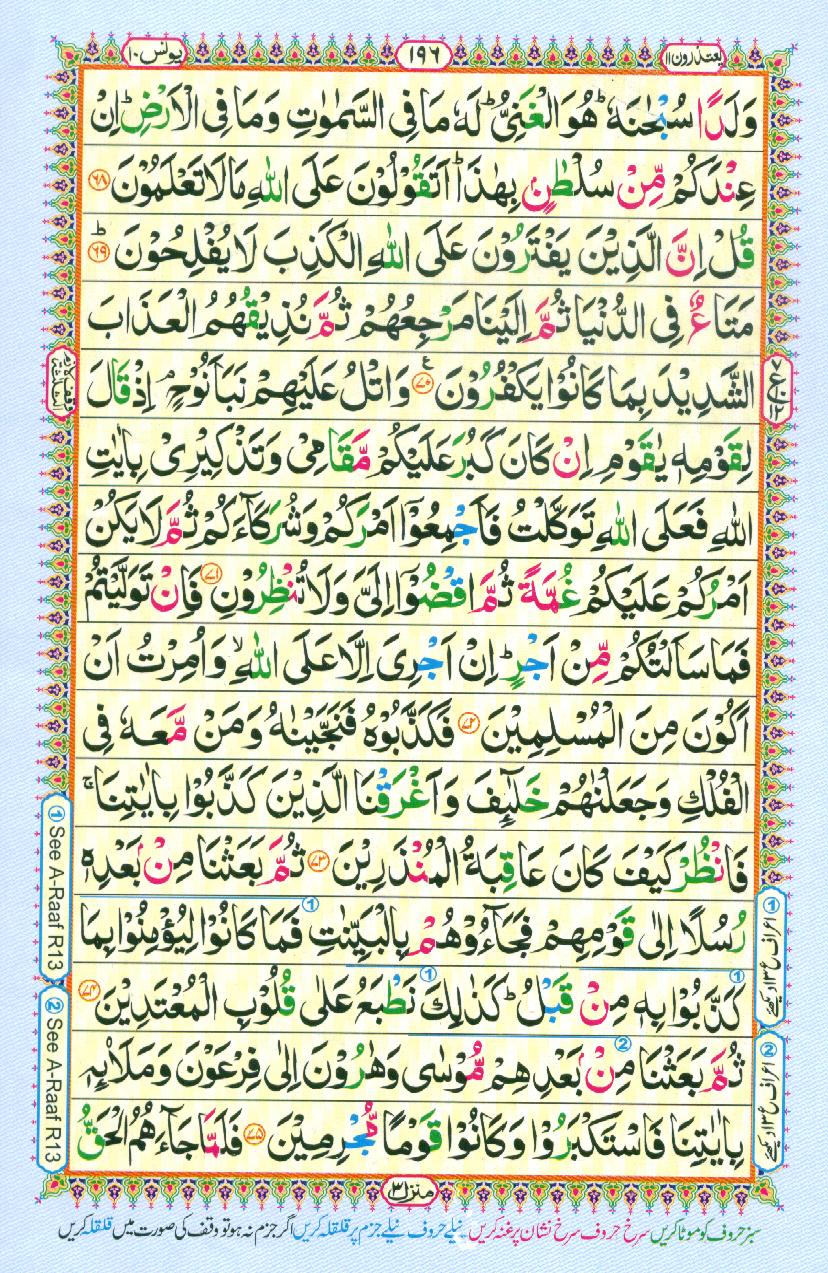 یعتذرون ۱۱
۱۹۶
یونس ۱۰
وَلَدًا سُبْحٰنَهٗ ؕ هُوَ الْغَنِیُّ ؕ لَهٗ مَا فِی السَّمٰوٰتِ وَمَا فِی الْاَرْضِ ؕ اِنْ
عِنْدَكُمْ مِّنْ سُلْطٰنٍۭ بِهٰذَا ؕ اَتَقُوْلُوْنَ عَلَی اللّٰهِ مَا لَا تَعْلَمُوْنَ ۶۸
قُلْ اِنَّ الَّذِیْنَ یَفْتَرُوْنَ عَلَی اللّٰهِ الْكَذِبَ لَا یُفْلِحُوْنَ ؕ ۶۹
مَتَاعٌ فِی الدُّنْیَا ثُمَّ اِلَیْنَا مَرْجِعُهُمْ ثُمَّ نُذِیْقُهُمُ الْعَذَابَ
الشَّدِیْدَ بِمَا كَانُوْا یَكْفُرُوْنَ ۷۰ وَاتْلُ عَلَیْهِمْ نَبَاَ نُوْحٍ ۘ اِذْ قَالَ
لِقَوْمِهٖ یٰقَوْمِ اِنْ كَانَ كَبُرَ عَلَیْكُمْ مَّقَامِیْ وَتَذْكِیْرِیْ بِاٰیٰتِ
اللّٰهِ فَعَلَی اللّٰهِ تَوَكَّلْتُ فَاَجْمِعُوْۤا اَمْرَكُمْ وَشُرَكَآءَكُمْ ثُمَّ لَا یَكُنْ
اَمْرُكُمْ عَلَیْكُمْ غُمَّةً ثُمَّ اقْضُوْۤا اِلَیَّ وَلَا تُنْظِرُوْنِ ۷۱ فَاِنْ تَوَلَّیْتُمْ
فَمَا سَاَلْتُكُمْ مِّنْ اَجْرٍ ؕ اِنْ اَجْرِیَ اِلَّا عَلَی اللّٰهِ ۙ وَاُمِرْتُ اَنْ
اَكُوْنَ مِنَ الْمُسْلِمِیْنَ ۷۲ فَكَذَّبُوْهُ فَنَجَّیْنٰهُ وَمَنْ مَّعَهٗ فِی
الْفُلْكِ وَجَعَلْنٰهُمْ خَلٰٓئِفَ وَاَغْرَقْنَا الَّذِیْنَ كَذَّبُوْا بِاٰیٰتِنَا ۚ
فَانْظُرْ كَیْفَ كَانَ عَاقِبَةُ الْمُنْذَرِیْنَ ۷۳ ثُمَّ بَعَثْنَا مِنْۢ بَعْدِهٖ
رُسُلًا اِلٰی قَوْمِهِمْ فَجَآءُوْهُمْ بِالْبَیِّنٰتِ فَمَا كَانُوْا لِیُؤْمِنُوْا بِمَا
كَذَّبُوْا بِهٖ مِنْ قَبْلُ ؕ كَذٰلِكَ نَطْبَعُ عَلٰی قُلُوْبِ الْمُعْتَدِیْنَ ۷۴
ثُمَّ بَعَثْنَا مِنْۢ بَعْدِهِمْ مُّوْسٰی وَهٰرُوْنَ اِلٰی فِرْعَوْنَ وَمَلَا۟ئِهٖ
بِاٰیٰتِنَا فَاسْتَكْبَرُوْا وَكَانُوْا قَوْمًا مُّجْرِمِیْنَ ۷۵ فَلَمَّا جَآءَهُمُ الْحَقُّ
① See A-Raaf R13
② See A-Raaf R13
منزل ۳
سبز حروف کو موٹا کریں سرخ حروف سرخ نشان پر غنہ کریں نیلے حروف نیلے جزم پر قلقلہ کریں اگر جزم نہ ہو تو وقف کی صورت میں قلقلہ کریں